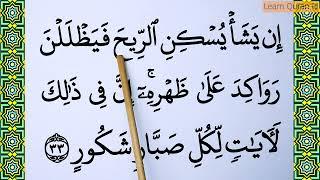 Learn Quran
إِن يَشَأۡ يُسۡكِنِ ٱلرِّيحَ فَيَظۡلَلۡنَ
رَوَاكِدَ عَلَىٰ ظَهۡرِهِۦٓۚ إِنَّ فِي ذَٰلِكَ
لَأٓيَٰتٖ لِّكُلِّ صَبَّارٖ شَكُورٍ ٣٣